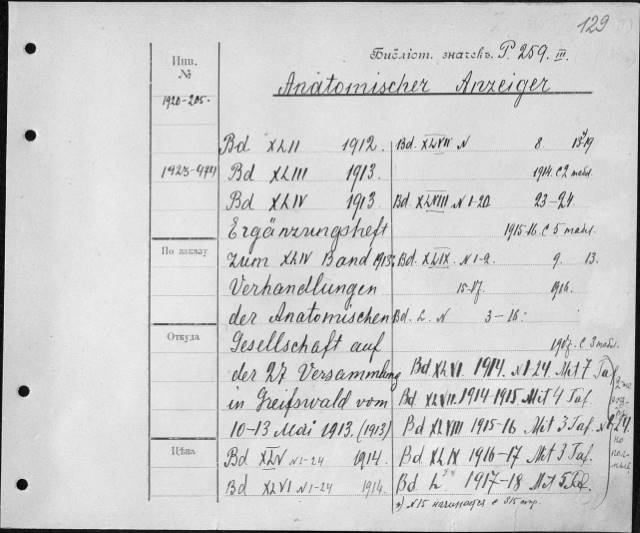 129
Библіот. значекъ. P. 259. III.
Anatomischer Anzeiger
Инв. №
1920-205.
1923-474
По заказу
Откуда
Цѣна
Bd XLII 1912.
Bd XLIII 1913.
Bd XLIV 1913
Ergänzungsheft
zum XLIV Band 1913:
Verhandlungen
der Anatomischen
Gesellschaft auf
der 27 Versammlung
in Greifswald vom
10-13 Mai 1913. (1913)
Bd XLV N 1-24 1914.
Bd XLVI N 1-24 1914.
Bd. XLVII N 8
1914. с 2 табл.
Bd XLVIII N 1-20 23-24.
1915-16. с 5 табл.
Bd. XLIX. N 1-2. 9. 13.
15-17. 1916.
Bd. L. N 3-16.
1917. с 3 табл.
Bd XLVI. 1914. N 1-24. Mit 7 Taf.
Bd XLVII. 1914-1915 Mit 4 Taf.
Bd XLVIII 1915-16 Mit 3 Taf.
Bd XLIX 1916-17 Mit 3 Taf.
Bd L 1917-18 Mit 5 Taf.
N 15 начинается с 315 стр.